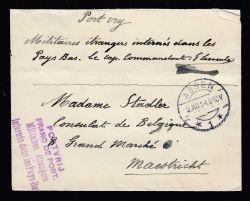 Port vry
Militaires étrangers internés dans les
Pays Bas. Le cap. Commandant
Madame Stadler
Consulat de Belgique
Grand Marché
Maestricht
ASSEN
PORTVRIJ
FRANC DE PORT.
Militaires étrangers
Internés dans les Pays-Bas